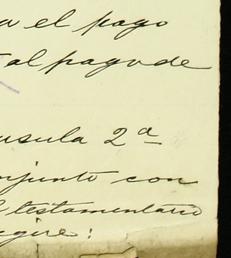 a el pago
al pago de
usula 2ª
njunto con
l testamentario